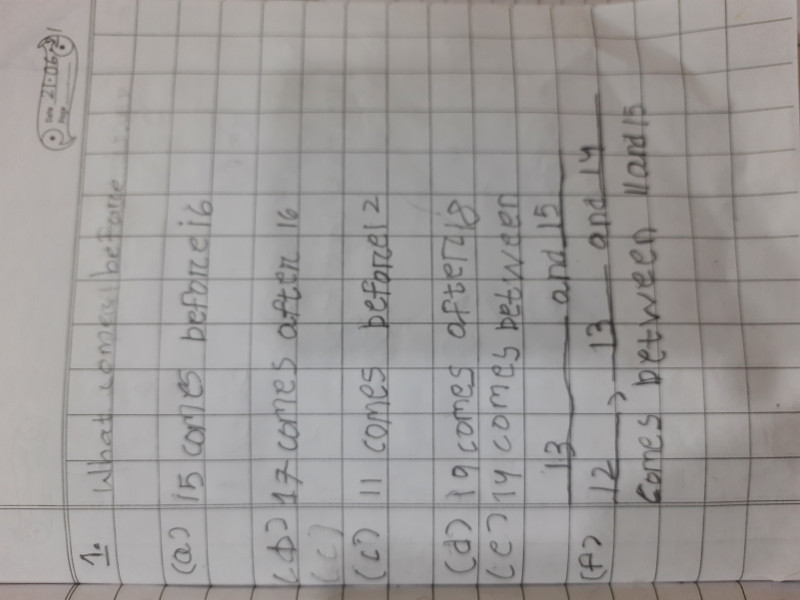 Date 21.06.21
Page
1. What comes before
(a) 15 comes before 16
(b) 17 comes after 16
(c)
(c) 11 comes before 12
(d) 19 comes after 18
(e) 14 comes between
13 and 15
(f) 12, 13 and 14
comes between 11 and 15